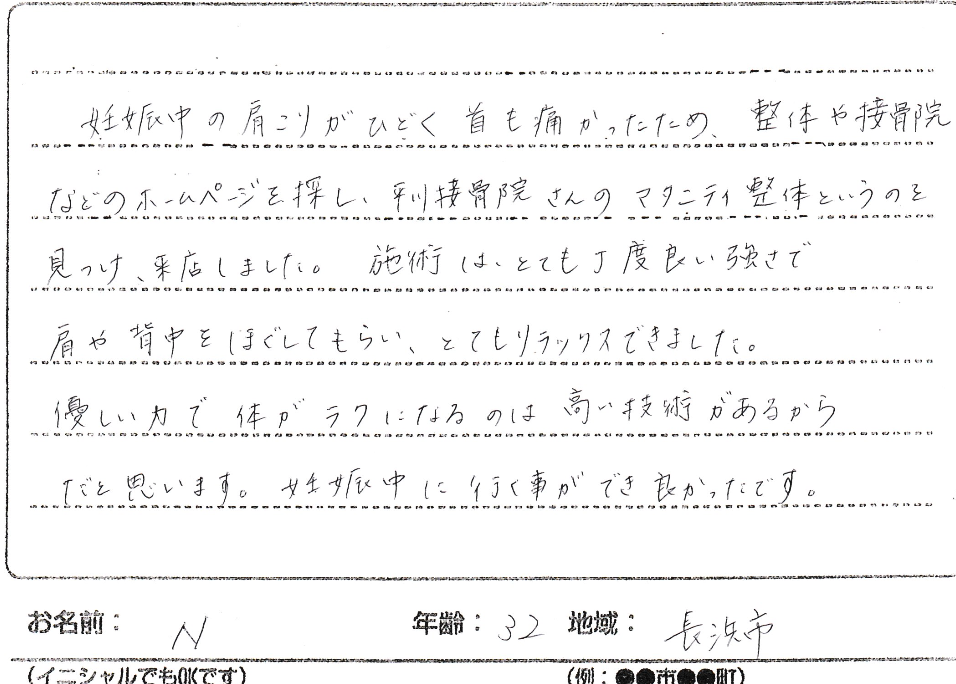 妊娠中の肩こりがひどく首も痛かったため、整体や接骨院
などのホームページを探し、平川接骨院さんのマタニティ整体というのを
見つけ、来店しました。施術は、とても丁度良い強さで
肩や背中をほぐしてもらい、とてもリラックスできました。
優しい力で体がラクになるのは高い技術があるから
だと思います。妊娠中に行く事ができ良かったです。
お名前： N 年齢： 32 地域： 長浜市
(イニシャルでもOKです) (例：●●市●●町)